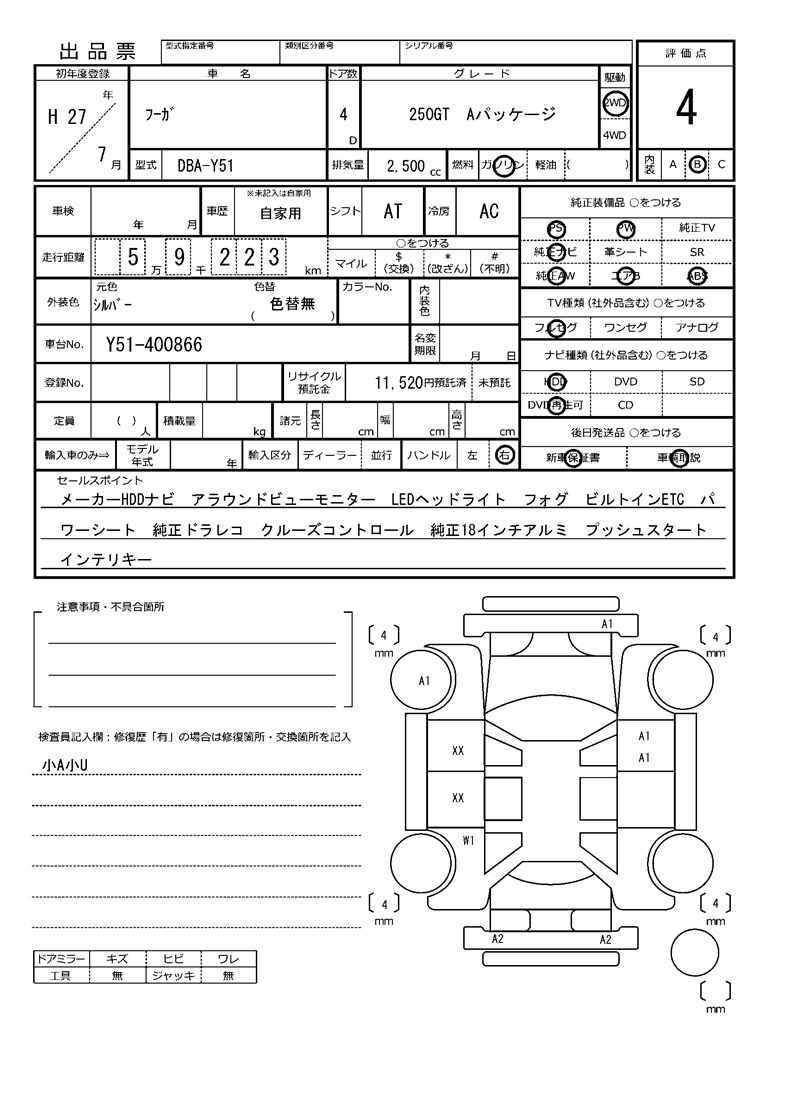 出品票 型式指定番号 類別区分番号 シリアル番号 評価点
初年度登録 車名 ドア数 グレード 駆動
H 27 年 7 月 ﾌｰｶﾞ 4 D 250GT Aパッケージ 2WD 4
4WD
型式 DBA-Y51 排気量 2,500 cc 燃料 ガソリン 軽油 ( ) 内装 A B C
車検 年 月 車歴 ※未記入は自家用 自家用 シフト AT 冷房 AC 純正装備品 ○をつける
PS PW 純正TV
走行距離 5 万 9 千 2 2 3 km ○をつける 純正ナビ 革シート SR
マイル $ (交換) * (改ざん) # (不明) 純正AW エアB ABS
外装色 元色 ｼﾙﾊﾞｰ 色替 ( 色替無 ) カラーNo. 内装色 TV種類(社外品含む)○をつける
フルセグ ワンセグ アナログ
車台No. Y51-400866 名変期限 月 日 ナビ種類(社外品含む)○をつける
登録No. リサイクル預託金 11,520円預託済 未預託 HDD DVD SD
DVD再生可 CD
定員 ( ) 人 積載量 kg 諸元 長さ cm 幅 cm 高さ cm 後日発送品 ○をつける
輸入車のみ⇒ モデル年式 年 輸入区分 ディーラー 並行 ハンドル 左 右 新車保証書 車輌取説
セールスポイント
メーカーHDDナビ アラウンドビューモニター LEDヘッドライト フォグ ビルトインETC パ
ワーシート 純正ドラレコ クルーズコントロール 純正18インチアルミ プッシュスタート
インテリキー
注意事項・不具合箇所
検査員記入欄：修復歴「有」の場合は修復箇所・交換箇所を記入
小A小U
ドアミラー キズ ヒビ ワレ
工具 無 ジャッキ 無
A1
4 mm
4 mm
A1
XX
A1
A1
XX
W1
4 mm
4 mm
A2 A2
mm